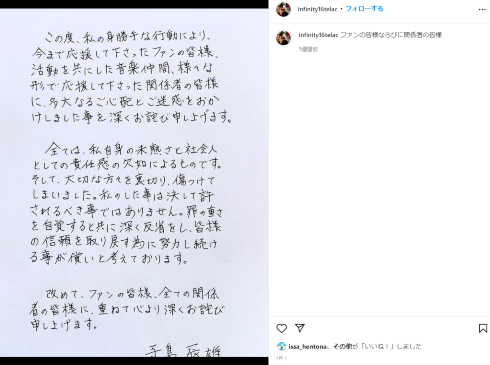 この度、私の身勝手な行動により、
今まで応援して下さったファンの皆様、
活動を共にした音楽仲間、様々な
形で応援して下さった関係者の皆様
に、多大なるご心配とご迷惑をおか
けしました事を深くお詫び申し上げます。
全ては、私自身の未熟さと社会人
としての責任感の欠如によるものです。
そして、大切な方々を裏切り、傷つけて
しまいました。私のした事は決して許
されるべき事ではありません。罪の重さ
を自覚すると共に深く反省をし、皆様
の信頼を取り戻す為に努力し続け
る事が償いと考えております。
改めて、ファンの皆様、全ての関係
者の皆様に、重ねて心より深くお詫び
申し上げます。
手島 辰雄
infinity16telac • フォローする
infinity16telac ファンの皆様ならびに関係者の皆様
issa_hentona、その他が「いいね！」しました